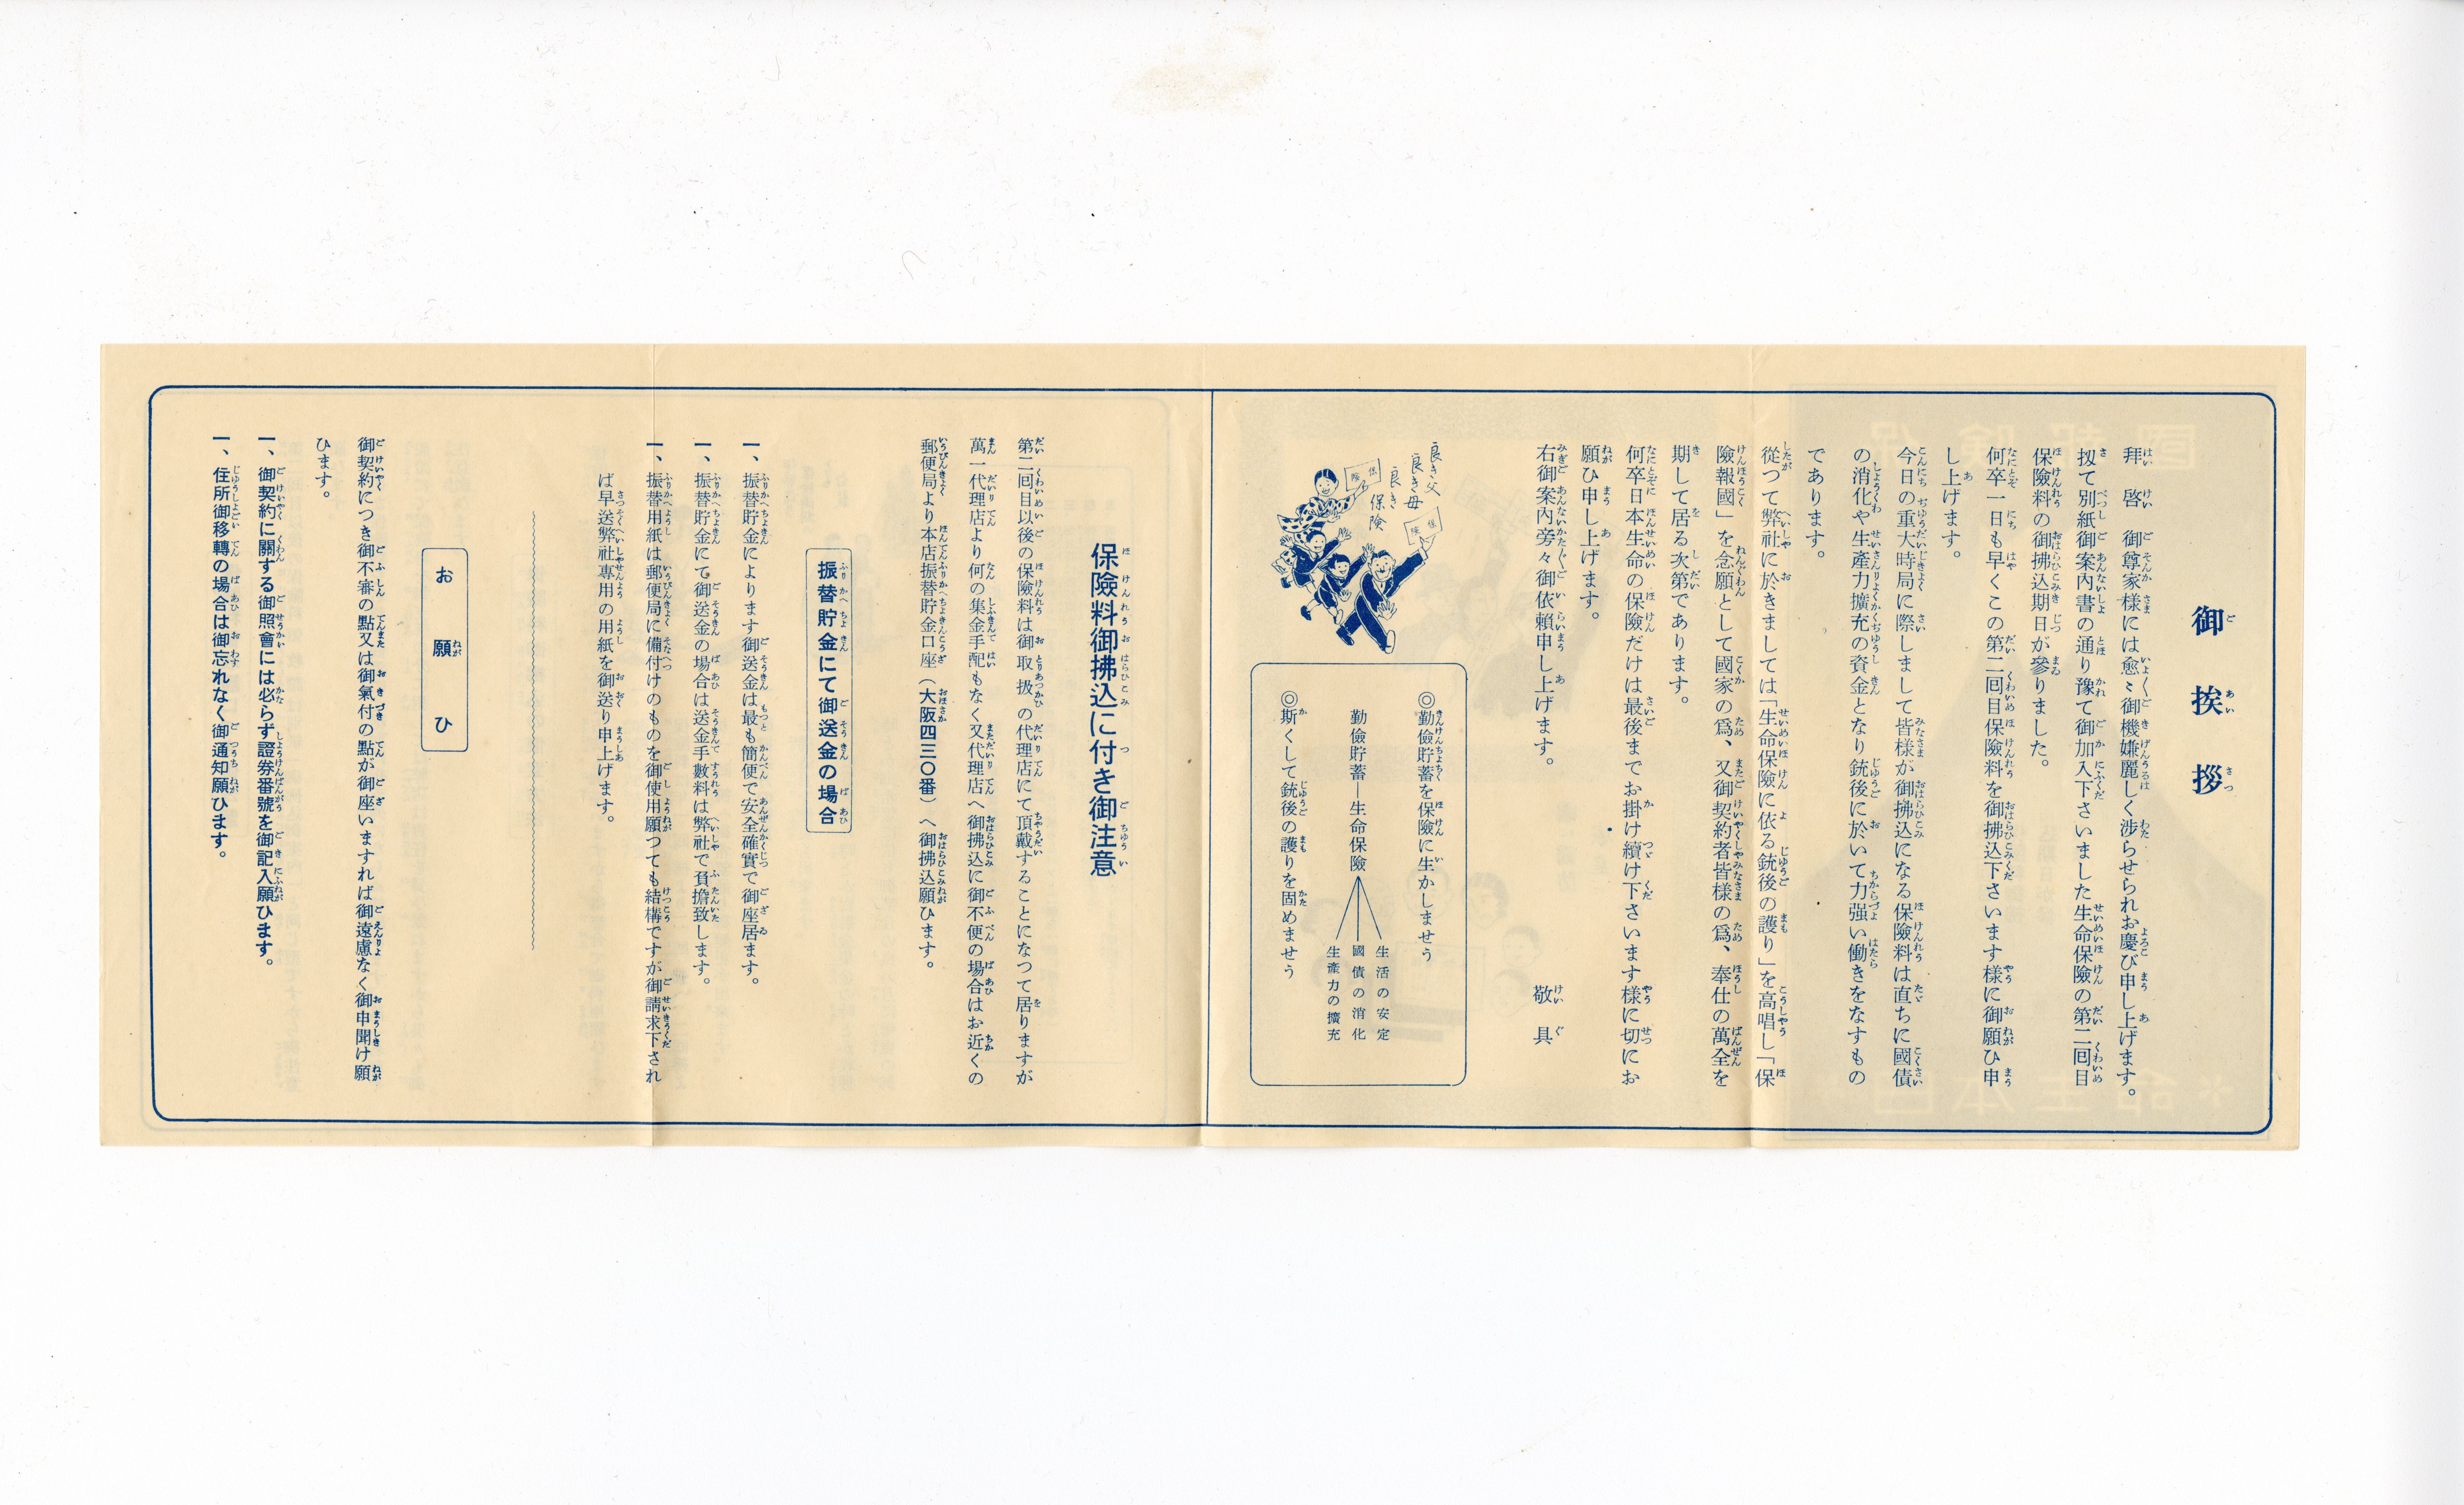 御挨拶
拜啓　御尊家樣には愈〻御機嫌麗しく涉らせられお慶び申し上げます。
扨て別紙御案內書の通り豫て御加入下さいました生命保險の第二囘目
保險料の御拂込期日が參りました。
何卒一日も早くこの第二囘目保險料を御拂込下さいます樣に御願ひ申
し上げます。
今日の重大時局に際しまして皆樣が御拂込になる保險料は直ちに國債
の消化や生產力擴充の資金となり銃後に於いて力强い働きをなすもの
であります。
從つて弊社に於きましては「生命保險に依る銃後の護り」を高唱し「保
險報國」を念願として國家の爲、又御契約者皆樣の爲、奉仕の萬全を
期して居る次第であります。
何卒日本生命の保險だけは最後までお掛け續け下さいます樣に切にお
願ひ申し上げます。
右御案內旁々御依賴申し上げます。
敬具
良き父
良き母
良き
保險
保險
保險
◎勤儉貯蓄を保險に生かしませう
勤儉貯蓄―生命保險
生活の安定
國債の消化
生產力の擴充
◎斯くして銃後の護りを固めませう
保險料御拂込に付き御注意
第二囘目以後の保險料は御取扱の代理店にて頂戴することになつて居りますが
萬一代理店より何の集金手配もなく又代理店へ御拂込に御不便の場合はお近くの
郵便局より本店振替貯金口座（大阪四三〇番）へ御拂込願ひます。
振替貯金にて御送金の場合
一、振替貯金によります御送金は最も簡便で安全確實で御座居ます。
一、振替貯金にて御送金の場合は送金手數料は弊社で負擔致します。
一、振替用紙は郵便局に備付けのものを御使用願つても結構ですが御請求下され
ば早送弊社專用の用紙を御送り申上げます。
お願ひ
御契約につき御不審の點又は御氣付の點が御座いますれば御遠慮なく御申聞け願
ひます。
一、御契約に關する御照會には必らず證券番號を御記入願ひます。
一、住所御移轉の場合は御忘れなく御通知願ひます。